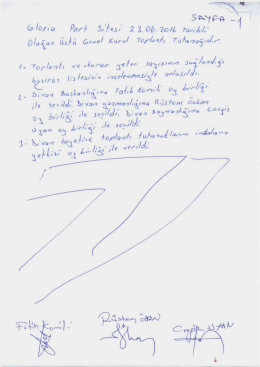 SAYFA - 1
Gloria Port Sitesi 23.06.2016 tarihli
Olağan Üstü Genel Kurul Toplantı Tutanağıdır
1- Toplantı ve karar yeter sayısının sağlandığı
hazirun listesinin incelemesiyle anlaşıldı.
2- Divan Başkanlığına Fatih Komili oy birliği
ile seçildi. Divan yazmanlığına Rüstem Özkan
oy birliği ile seçildi. Divan Saymanlığına Cengiz
Uyan oy birliği ile seçildi.
3- Divan heyetine toplantı tutanaklarını imzalama
yetkisi oy birliği ile verildi.
Fatih Komili Rüstem Cengiz UYAN